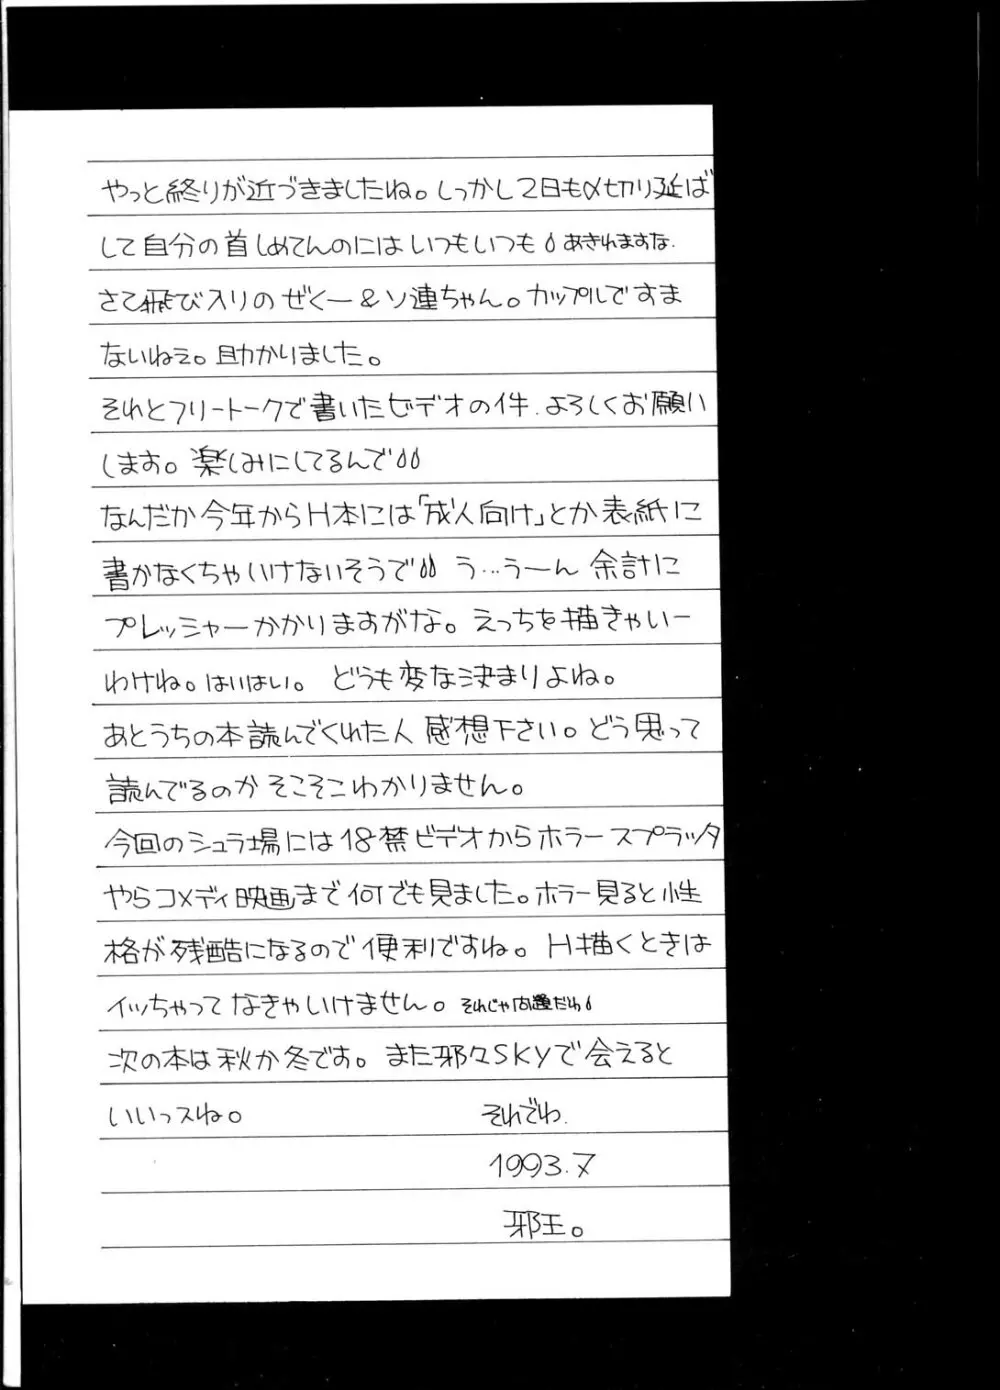 やっと終りが近づきましたね。しっかし2日も〆切り延ば
して自分の首しめてんのにはいつもいつも あきれますな.
さて飛び入りのぜくー&ソ連ちゃん。カップルですま
ないねえ。助かりました。
それとフリートークで書いたビデオの件.よろしくお願い
します。楽しみにしてるんで
なんだか今年からH本には「成人向け」とか表紙に
書かなくちゃいけないそうで う…うーん 余計に
プレッシャーかかりますがな。えっちを描きゃいー
わけね。はいはい。 どうも変な決まりよね。
あとうちの本読んでくれた人 感想下さい。どう思って
読んでるのか そこそこわかりません。
今回のシュラ場には18禁ビデオからホラースプラッタ
やらコメディ映画まで何でも見ました。ホラー見ると性
格が残酷になるので便利ですね。H描くときは
イッちゃってなきゃいけません。それじゃ問題だわ
次の本は秋か冬です。また邪々SKYで会えると
いいっスね。 それでわ.
1993.7
邪王。